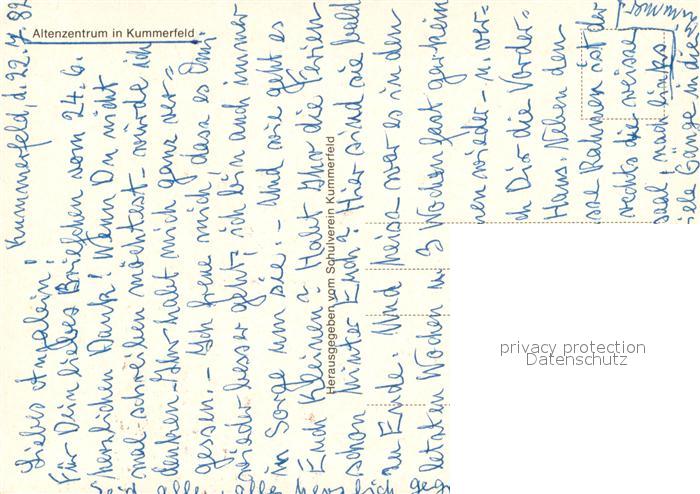 Altenzentrum in Kummerfeld
Herausgegeben vom Schulverein Kummerfeld
Kummerfeld, d. 22.7.82
Liebes Annalein!
Für Dein liebes Briefchen vom 24.6.
herzlichen Dank! Wenn Du nicht
mal schreiben möchtest - würde ich
denken - Ihr habt mich ganz ver=
gessen. - Ich freue mich, dass es Omi
wieder besser geht; ich bin auch immer
in Sorge um sie. - Und wie geht es
Euch Kleinen? Habt Ihr die Ferien
schon hinter Euch? Hier sind sie bald
zu Ende. Und heiss war es in den
letzten Wochen u. 3 Wochen fast gar kein
nen wieder - u. ver-
ch Dir die Vorder-
Haus. Neben den
sse Rahmen ist der
rechts die weisse
saal! nach links
iele Gänge in die
Zimmer!
Seid alle, alle herzlich geg
privacy protection
Datenschutz